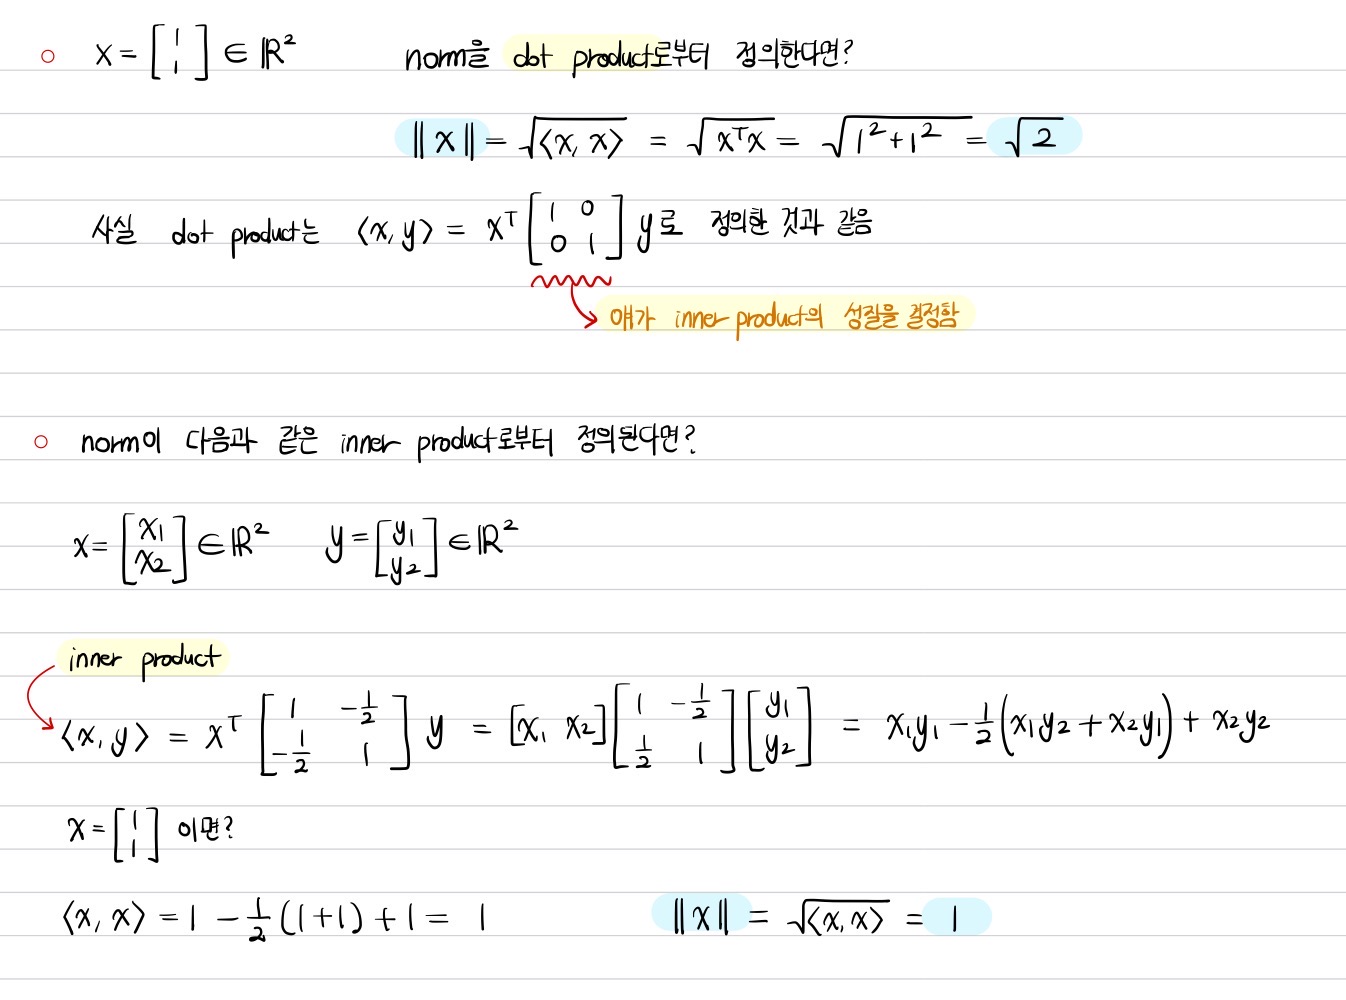 ○ x = [1 1] ∈ ℝ² norm을 dot product로부터 정의한다면?
‖x‖ = √⟨x, x⟩ = √xᵀx = √1²+1² = √2
사실 dot product는 ⟨x, y⟩ = xᵀ [1 0 0 1] y로 정의한 것과 같음
얘가 inner product의 성질을 결정함
○ norm이 다음과 같은 inner product로부터 정의된다면?
x = [x₁ x₂] ∈ ℝ² y = [y₁ y₂] ∈ ℝ²
inner product
⟨x, y⟩ = xᵀ [1 -1/2 -1/2 1] y = [x₁ x₂] [1 -1/2 1/2 1] [y₁ y₂] = x₁y₁ - 1/2 (x₁y₂ + x₂y₁) + x₂y₂
x = [1 1] 이면?
⟨x, x⟩ = 1 - 1/2 (1+1) + 1 = 1 ‖x‖ = √⟨x, x⟩ = 1